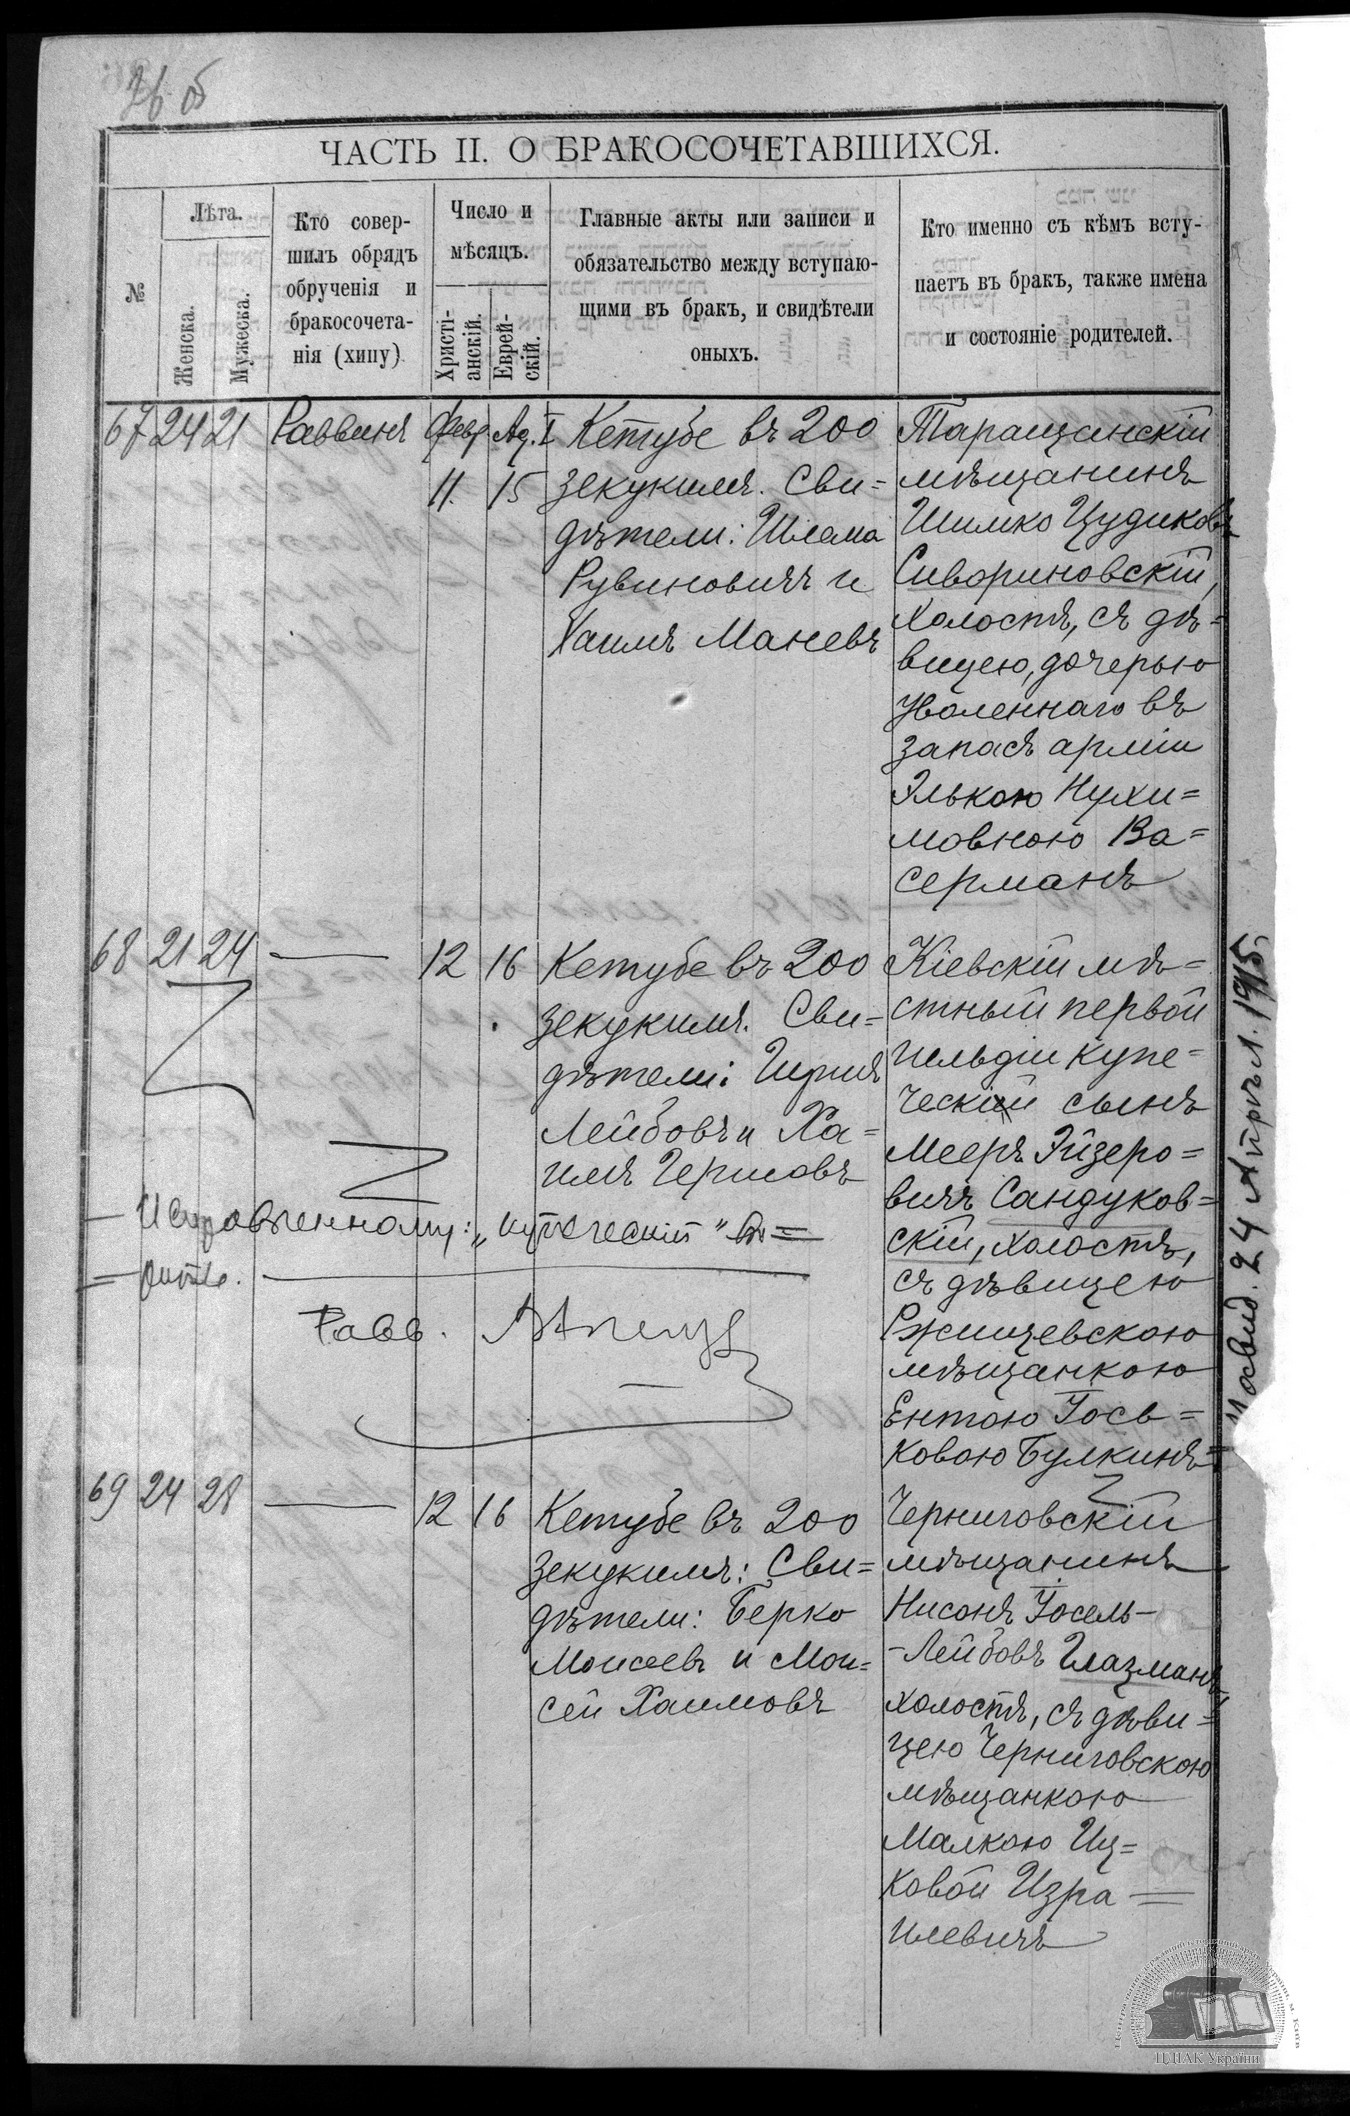 36 об
ЧАСТЬ II. О БРАКОСОЧЕТАВШИХСЯ.
№
Лѣта.
Женска.
Мужеска.
Кто совер-
шилъ обрядъ
обрученія и
бракосочета-
нія (хипу)
Число и
мѣсяцъ.
Христі-
анскій.
Еврей-
скій.
Главные акты или записи и
обязательство между вступаю-
щими въ бракъ, и свидѣтели
оныхъ.
Кто именно съ кѣмъ всту-
паетъ въ бракъ, также имена
и состояніе родителей.
67 24 21 Раввинъ Февр. Ад. I
11. 15
Кетубе въ 200
зекукимъ. Сви=
дѣтели: Шлема
Рувиновичъ и
Хаимъ Маневъ
Таращанскій
мѣщанинъ
Шимко Цудиковъ
Сивориновскій,
холостъ, съ дѣ=
вицею, дочерью
уволеннаго въ
запасъ арміи
Элькою Нухи=
мовною Ва=
серманъ
68 21 24 — 12 16
Кетубе въ 200
зекукимъ. Сви=
дѣтели: Гершъ
Лейбовъ и Ха=
имъ Гершовъ
Кіевскій мѣ=
стный первой
гильдіи купе=
ческій сынъ
Мееръ Эйзеро=
вичъ Сандуков=
скій, холостъ,
съ дѣвицею
Ржищевскою
мѣщанкою
Ентою Іось=
ковою Булкинъ=
— Исправленному: „купеческій"
Равв.
69 24 28 — 12 16
Кетубе въ 200
зекукимъ: Сви=
дѣтели: Берко
Моисеевъ и Мои=
сей Хаимовъ
Черниговскій
мѣщанинъ
Нисонъ Іосель-
-Лейбовъ Глазманъ,
холостъ, съ дѣви=
цею Черниговскою
мѣщанкою
Малкою Иц=
ковой Изра=
илевичъ
24 Апрѣл. 1915
ЦДІАК України